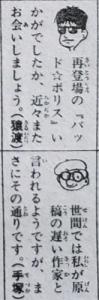 再登場の『バッ
ド☆ボリス』い
かがでしたか 近々また
お会いしましょう。(狼渡)
世間では私が原
稿の遅い作家と
言われるようですが、ま
さにその通りです。(手塚)